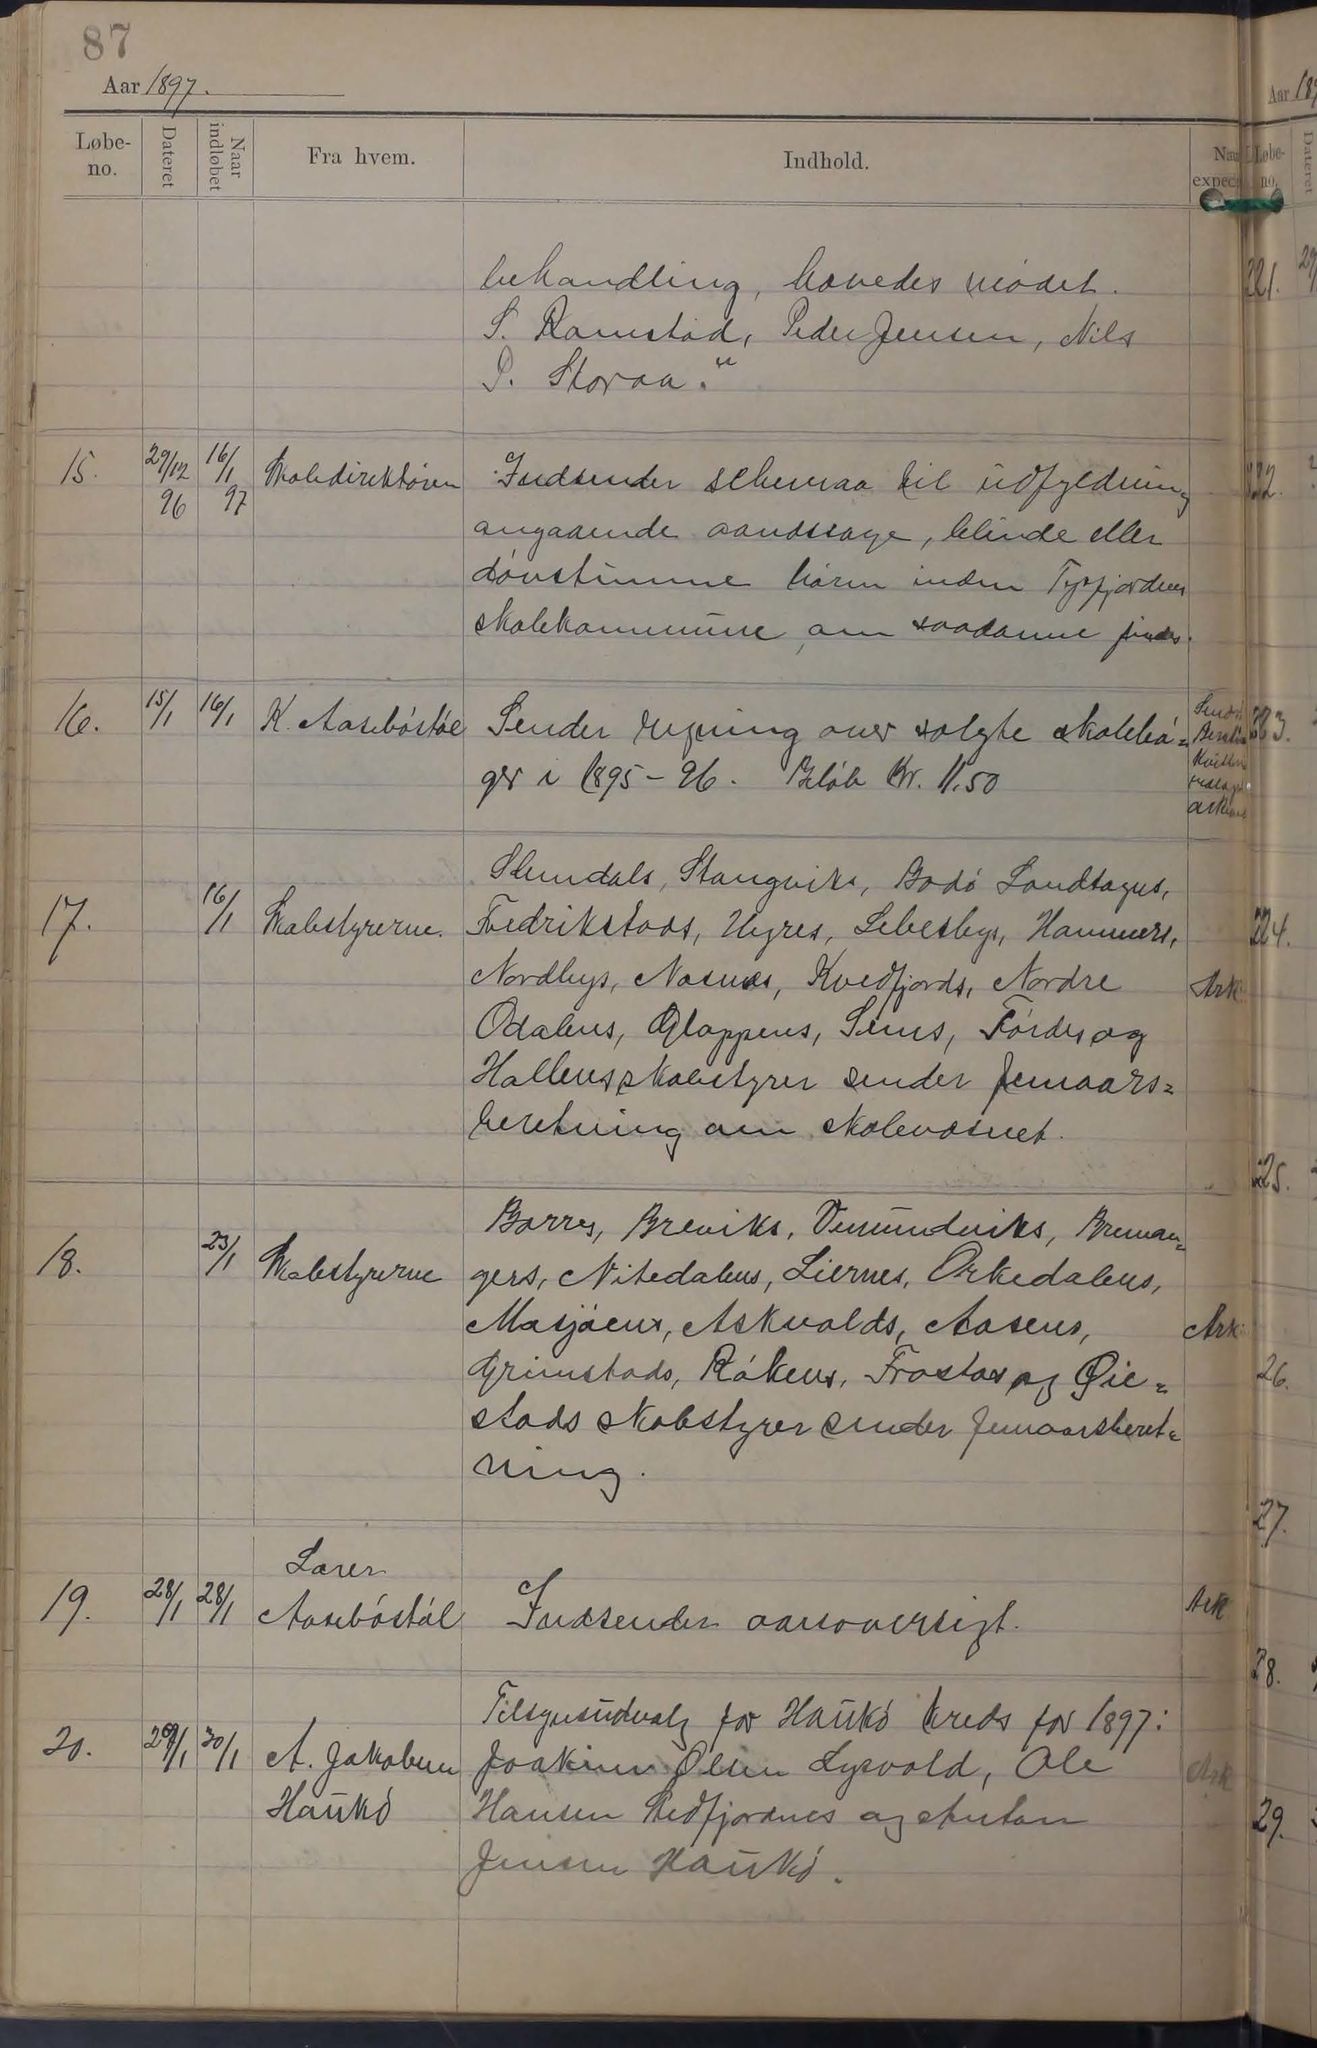 87
Aar 1897.
Løbe-no. Dateret Naar indløbet Fra hvem. Indhold.
behandling, hævedes mødet.
S. Ramstad, Peder Jensen, Nils
P. Storaa."
15. 29/12 96 16/1 97 Skoledirektøren Indsender schemaa til udfyldning
angaaende aandssvage, blinde eller
døvstumme børn inden Tysfjordens
skolekommune, om saadanne findes.
16. 15/1 16/1 K. Aasebøstøl Sender regning over solgte skolebø-
ger i 1895-96. Beløb Kr. 11.50
17. 16/1 Skolestyrerne. Stangviks, Bodø Landsogns,
Fredrikstads, Hegres, Lebesbys, Hammers,
Nordbys, Næsnes, Kvedfjords, Nordre Ark.
Odalens, Gloppens, Sems, Førdes og
skolestyrer sender femaars-
beretning om skolevæsnet.
18. 23/1 Skolestyrerne Borres, Breviks, Vemundviks, Breman-
gers, Nitedalens, Liernes, Orkedalens,
Mosjøens, Askvolds, Aasens, Ark.
Grimstads, Røkens, Frostas og Øie-
stads skolestyrer sender femaarsberet-
ning.
19. 28/1 28/1 Lærer Aasebøstøl Indsender aarsoversigt. Ark
20. 29/1 30/1 A. Jakobsen Haukø Tilsynsudvalg for Haukø kreds for 1897:
Joakim Olsen Lysvold, Ole Ark
Hansen Stedfjordnes og Anton
Jensen Haukø.